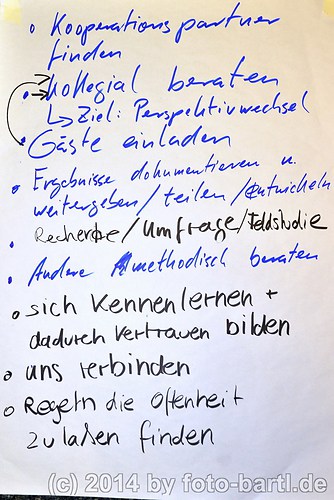 • Kooperationspartner
finden
• Kollegial beraten
↳ Ziel: Perspektivwechsel
• Gäste einladen
• Ergebnisse dokumentieren u.
weitergeben/teilen/entwickeln
• Recherche/Umfrage/Feldstudie
• Andere methodisch beraten
• sich kennenlernen +
dadurch Vertrauen bilden
• uns verbinden
• Regeln die Offenheit
zulassen finden
(c) 2014 by foto-bartl.de